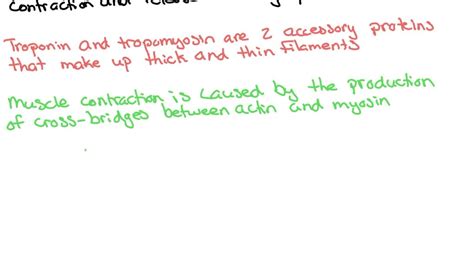 contraction and
Troponin and tropomyosin are 2 accessory proteins
that make up thick and thin filaments
Muscle contraction is caused by the production
of cross-bridges between actin and myosin